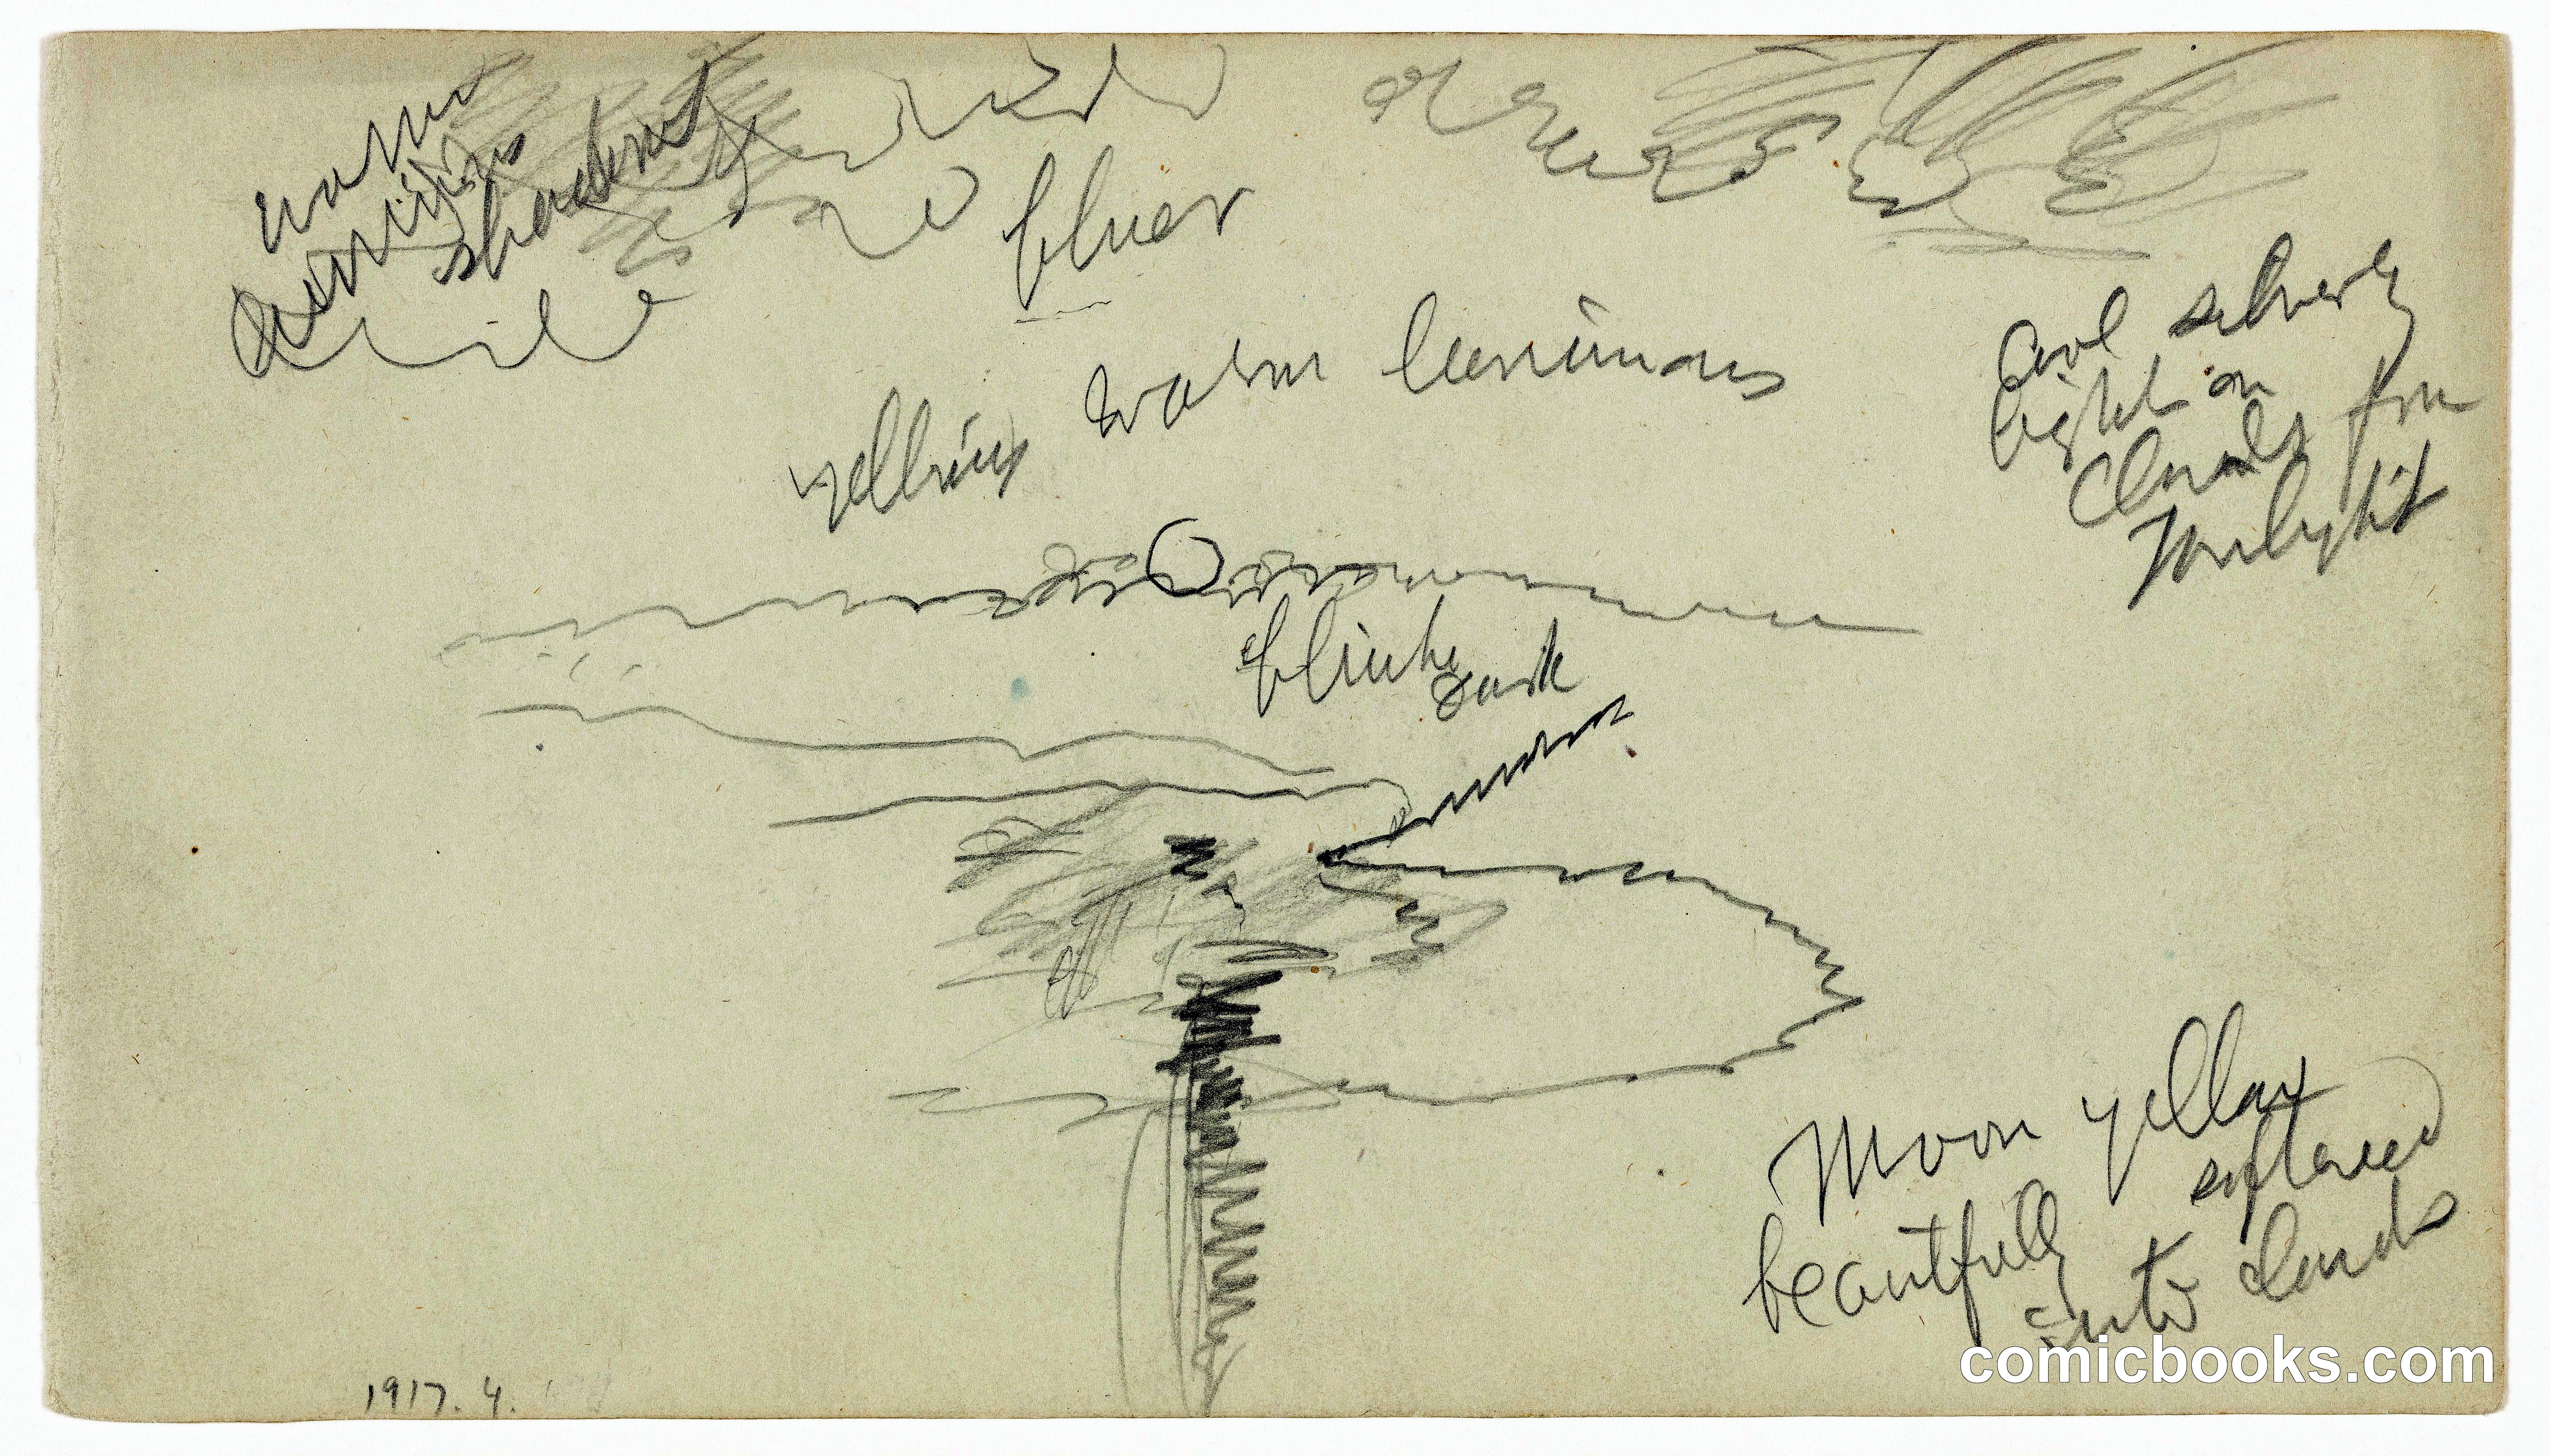 warm
luminous
shadows
bluer
warm luminous
Cool silvery
light on
Clouds from
Twilight
dark
Moon yellow
softened
beautfully
into clouds
1917. 4.
comicbooks.com